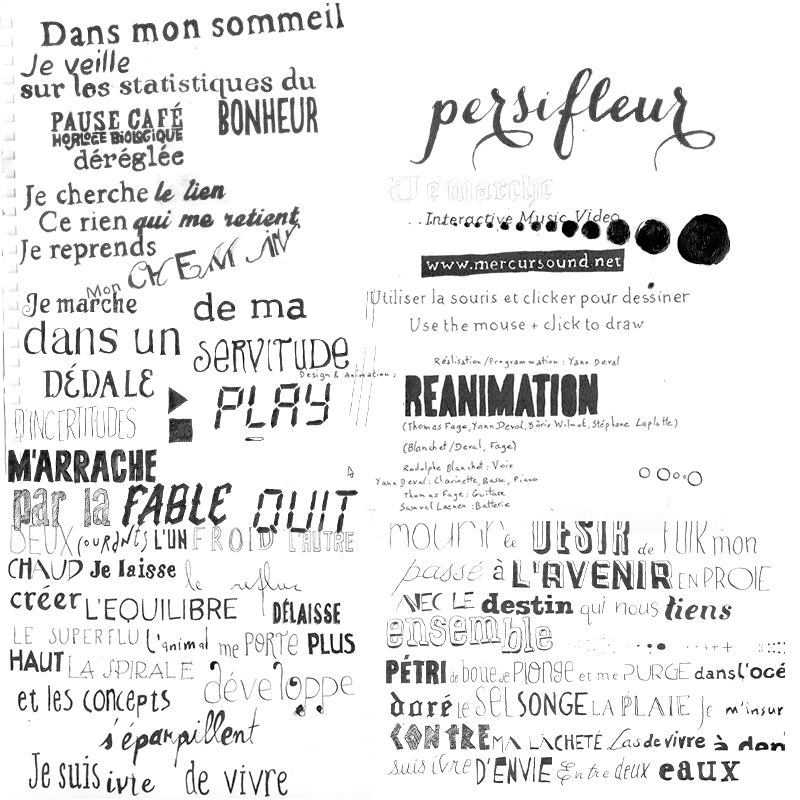 Dans mon sommeil
Je veille
sur les statistiques du
PAUSE CAFÉ BONHEUR
HORLOGE BIOLOGIQUE
déréglée
Je cherche le lien
Ce rien qui me retient
Je reprends
Mon CHEMIN
Je marche de ma
dans un SERVITUDE
DÉDALE
D'INCERTITUDES PLAY
M'ARRACHE
par la FABLE QUIT
DEUX COURANTS L'UN FROID L'AUTRE
CHAUD Je laisse le reflux
créer L'EQUILIBRE DÉLAISSE
LE SUPERFLU L'animal me PORTE PLUS
HAUT LA SPIRALE développe
et les concepts
s'éparpillent
Je suis ivre de vivre
persifleur
Je marche
..Interactive Music Video
www.mercursound.net
Utiliser la souris et clicker pour dessiner
Use the mouse + click to draw
Réalisation/Programmation : Yann Deval
Design & Animation :
REANIMATION
(Thomas Fage, Yann Deval, Boris Wilmot, Stéphane Laplatte)
(Blanchet/Deval, Fage)
Rodolphe Blanchet : Voix
Yann Deval : Clarinette, Basse, Piano
Thomas Fage : Guitare
Samuel Lacnen : Batterie
mourir le DÉSIR de FUIR mon
passé à L'AVENIR EN PROIE
AVEC LE destin qui nous tiens
ensemble
PÉTRI de boue je PLONGE et me PURGE dans L'océ
doré le SEL SONGE LA PLAIE Je m'insur
CONTRE MA LÂCHETÉ Las de vivre à den
suis ivre D'ENVIE Entre deux eaux